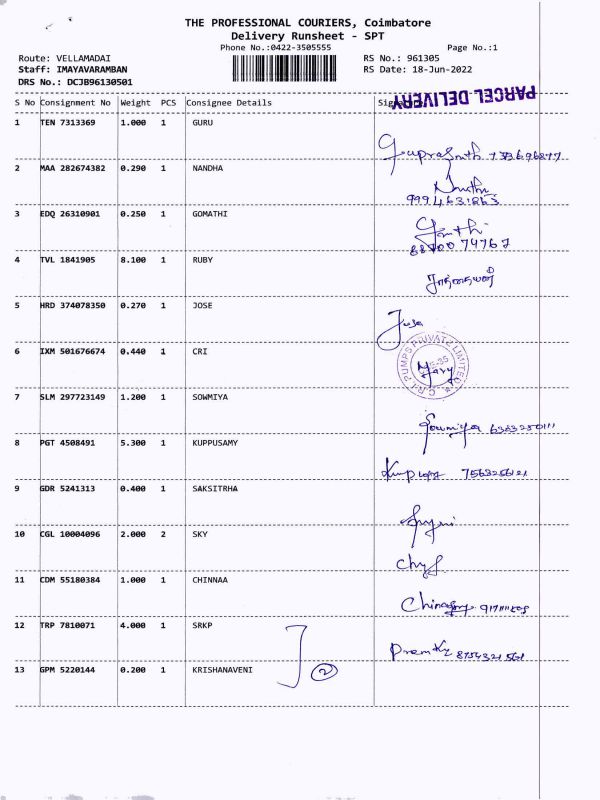 THE PROFESSIONAL COURIERS, Coimbatore
Delivery Runsheet - SPT
Phone No.:0422-3505555 Page No.:1
Route: VELLAMADAI RS No.: 961305
Staff: IMAYAVARAMBAN RS Date: 18-Jun-2022
DRS No.: DCJB96130501
PARCEL DELIVERY
S No Consignment No Weight PCS Consignee Details
1 TEN 7313369 1.000 1 GURU
2 MAA 282674382 0.290 1 NANDHA
3 EDQ 26310901 0.250 1 GOMATHI
88700 74767
4 TVL 1841905 8.100 1 RUBY
5 HRD 374078350 0.270 1 JOSE
Jose
6 IXM 501676674 0.440 1 CRI
C.R.I. PUMPS PRIVATE LIMITED
Mary
7 SLM 297723149 1.200 1 SOWMIYA
Sowmiya
8 PGT 4508491 5.300 1 KUPPUSAMY
9 GDR 5241313 0.400 1 SAKSITRHA
10 CGL 10004096 2.000 2 SKY
11 CDM 55180384 1.000 1 CHINNAA
12 TRP 7810071 4.000 1 SRKP
13 GPM 5220144 0.200 1 KRISHANAVENI
2